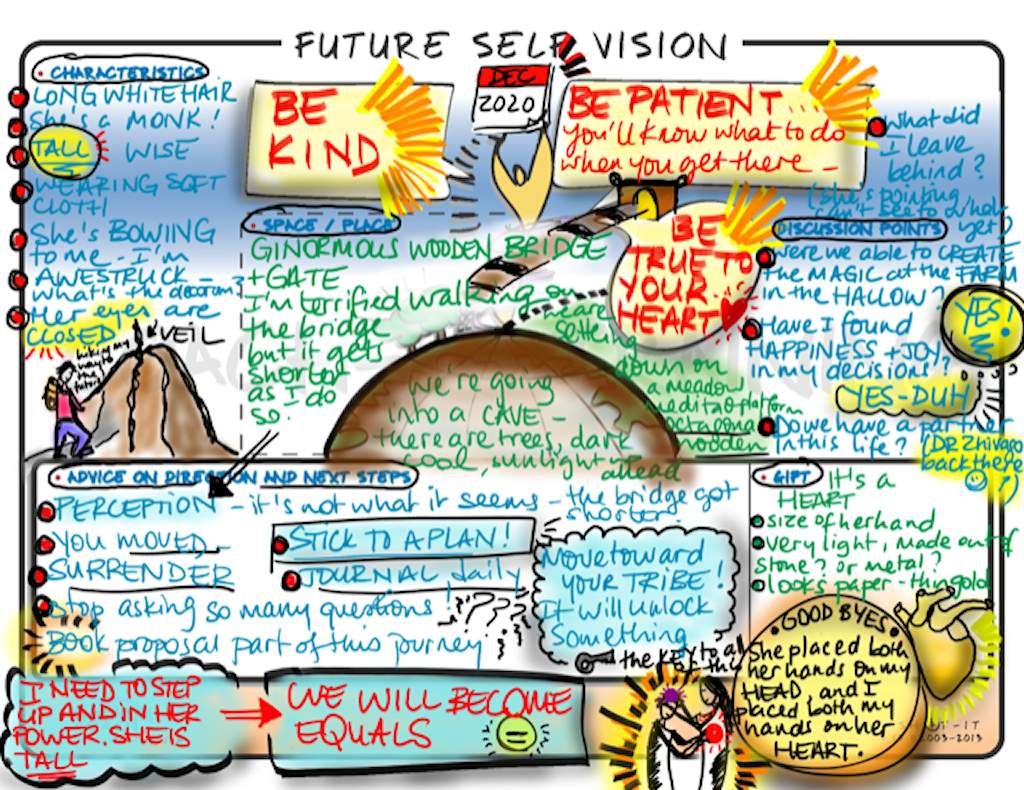 FUTURE SELF VISION
CHARACTERISTICS
LONG WHITE HAIR
She's a MONK!
TALL WISE
WEARING SOFT
CLOTH
She's BOWING
to me - I'm
AWESTRUCK -
what's the decorum?
Her eyes are
CLOSED
VEIL
hiking my
way to
the
future
BE
KIND
DEC
2020
BE PATIENT...
you'll know what to do
when you get there -
What did
I leave
behind?
(she's pointing
can't see to what
yet)
SPACE / PLACE
GINORMOUS WOODEN BRIDGE
+ GATE
I'm terrified walking on
the bridge
but it gets
shorter
as I do
so.
we're going
into a CAVE -
there are trees, dark
cool, sunlight
ahead
we are
settling
down on
a meadow
meditad platform
octagonal
wooden
BE
TRUE TO
YOUR
HEART
DISCUSSION POINTS
were we able to CREATE
the MAGIC at the FARM
in the HALLOW?
YES!
Have I found
HAPPINESS + JOY
in my decisions?
YES-DUH
Do we have a partner
in this life?
(DR Zhivago
back there
ADVICE ON DIRECTION AND NEXT STEPS
PERCEPTION - it's not what it seems - the bridge got
shorter
YOU MOVED -
SURRENDER
STICK TO A PLAN!
JOURNAL daily
Stop asking so many questions! ???
Book proposal part of this journey
Move toward
your TRIBE!
It will unlock
something
the KEY to all
of this
GIFT
It's a
HEART
size of her hand
very light, made out of
stone? or metal?
looks paper-thin gold
I NEED TO STEP
UP AND IN HER
POWER. SHE IS
TALL
WE WILL BECOME
EQUALS
=
GOOD BYES
She placed both
her hands on my
HEAD, and I
placed both my
hands on her
HEART.
2003-2013